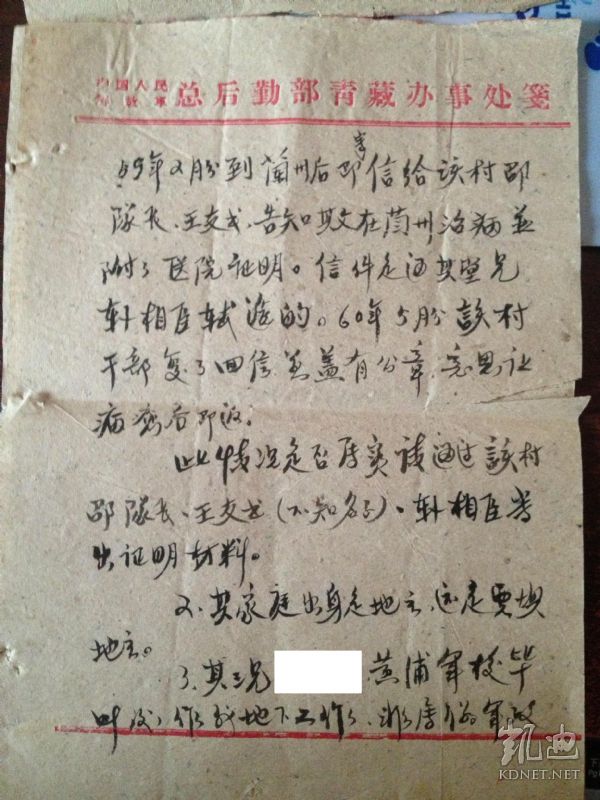 中国人民
解放军 总后勤部青藏办事处笺
59年2月份到兰州后即寄信给该村邵
队长、王支书,告知其父在兰州治病並
附了医院证明。信件是通其堂兄
轩相臣转递的。60年5月份該村
干部复了回信並盖有公章,意思让
病癒后即返。
此情况是否属实请通过該村
邵队长、王支书(不知名字)、轩相臣等
出证明材料。
2、其家庭出身是地主,还是要埧
地主。
3、其三兄 黄浦军校毕
叶后,作我地下工作,
凯迪
KDNET.NET